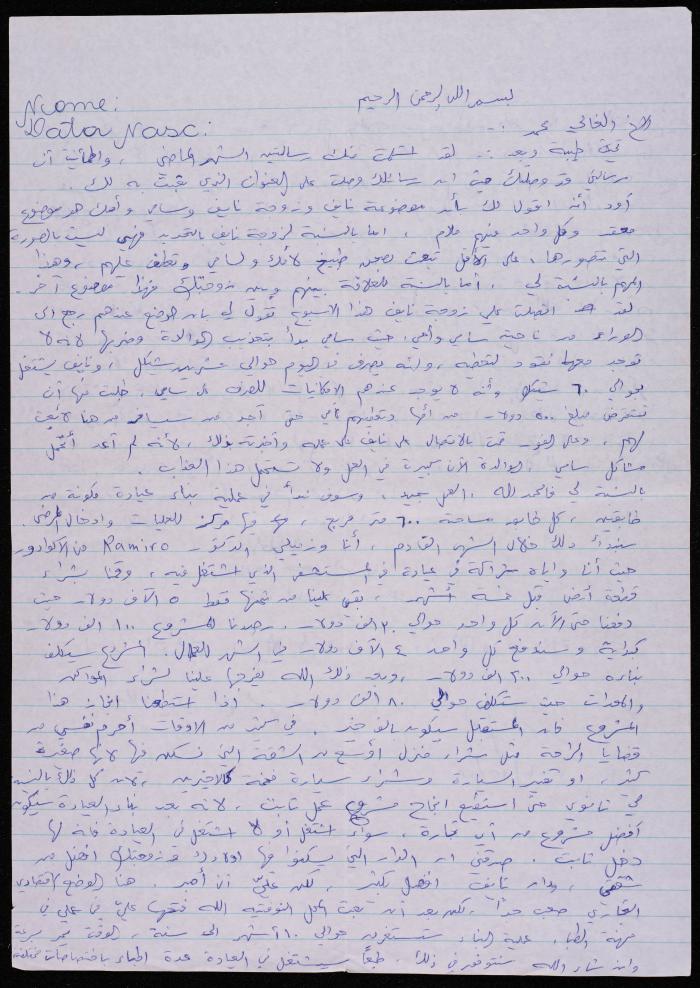 بسم الله الرحمن الرحيم
Nome:
Data Nasc:
الاخ الغالي محمد
تحية طيبة وبعد .. لقد استلمت منك رسالتين الشهر الماضي ، واطمأنيت أن
رسالتي قد وصلتك حيث ان رسائلك وصلت على العنوان الذي بعثت به لك .
أود أن اقول لك بأن موضوعة نايف وزوجة نايف وسامي وأمك هو موضوع
معقد وكل واحد منهم ملام ، اما بالنسبة لزوجة نايف بالتحديد فهي ليست بالصورة
التي تتصورها ، على الأقل تبعث بصحن طبيخ لأمك ولسامي وتعطف عليهم ، وهذا
المهم بالنسبة لي . أما بالنسبة للعلاقة بينهم وبين زوجتك فهذا موضوع آخر .
لقد اتصلت علي زوجة نايف هذا الاسبوع تقول لي بان الوضع عندهم رجع الى
الوراء من ناحية سامي وأمي ، حيث سامي بدأ بتعذيب الوالدة وضربها لانه لا
توجد معها نقود لتعطيه ، وانه يصرف في اليوم حوالي عشرين شيكل ، ونايف يشتغل
بحوالي ٦٠ شيكل وأنه لا يوجد عندهم الامكانيات للصرف على سامي . طلبت منها أن
تستقرض مبلغ ٥٠٠ دولار من أمها وتعطيهم لأمي حتى أجد من يسافر من هنا لأبعث
لهم ، وعلى الفور قمت بالاتصال على نايف في عمله وأخبرته بذلك ، لأنه لم أعد أتحمل
مشاكل سامي ، الوالدة الآن كبيرة في العمر ولا تستحمل هذا العذاب .
بالنسبة لي فالحمد لله ، العمل جيد ، وسوف نبدأ في عملية بناء عيادة مكونة من
طابقين ، كل طابق مساحته ٦٠٠ متر مربع ، فيها مركز للعمليات وادخال المرضى .
سنبدأ ذلك خلال الشهر القادم ، أنا وزميلي الدكتور Ramiro من الاكوادور
حيث أنا واياه شراكة في عيادة في المستشفى الذي اشتغل فيه ، وقمنا بشراء
قطعة أرض قبل خمسة أشهر ، بقي علينا من ثمنها فقط ٥ آلاف دولار حيث
دفعنا حتى الآن كل واحد حوالي ٣٠ الف دولار . رصدنا للمشروع ١٠٠ الف دولار
كبداية وسندفع كل واحد ٤ آلاف دولار في الشهر للعمال . المشروع سيكلف
بناءه حوالي ٢٠٠ الف دولار ، وبعد ذلك الله يفرجها علينا لشراء المواكن
والمعدات حيث ستكلف حوالي ٨٠ الف دولار . اذا استطعنا انجاز هذا
المشروع فان المستقبل سيكون بالف خير . في كثير من الاوقات أحرم نفسي من
قضايا الراحة مثل شراء منزل أوسع من الشقة التي نسكن فيها لانها صغيرة
كثير ، او تغيير السيارة وشراء سيارة فخمة كالآخرين ، لان كل ذلك بالنسبة
لي ثانوي حتى استطيع انجاح مشروع عمل ثابت ، لانه بعد بناء العيادة سيكون
أفضل مشروع من أي تجارة ، سواء اشتغل أو لا اشتغل في العيادة فانه لها
دخل ثابت . صدقني ان الدار التي يسكنوا فيها اولادك وزوجتك افضل من
شقتي ، ودار نايف افضل بكثير ، لكن عليّ أن أصبر . هنا الوضع اقتصادي
التجاري صعب جداً ، لكن بعد أن بعت المحل النوفتيه الله فتحها عليّ في عملي في
مهنة الطب . عملية البناء ستستغرق حوالي ١٠ أشهر الى سنة ، الوقت يمر بسرعة
وان شاء الله سنتوفق في ذلك . طبعاً سيشتغل في العيادة عدة اطباء باختصاصات مختلفة